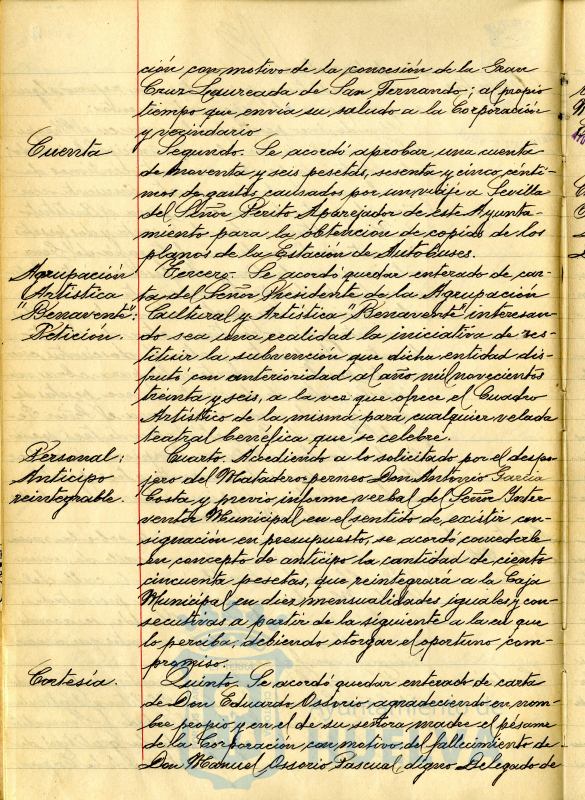 ción con motivo de la concesión de la Gran
Cruz Laureada de San Fernando; al propio
tiempo que envía su saludo a la Corporación
y vecindario
Cuenta
Segundo. Se acordó aprobar una cuenta
de noventa y seis pesetas, sesenta y cinco cénti-
mos de gastos causados por un viaje a Sevilla
del Señor Perito Aparejador de este Ayunta-
miento para la obtención de copias de los
planos de la Estación de Autobuses.
Agrupación
Artística
"Benavente":
Petición.
Tercero. Se acordó quedar enterado de car-
ta del Señor Presidente de la Agrupación
Cultural y Artística "Benavente" interesan-
do sea una realidad la iniciativa de res-
tituir la subvención que dicha entidad dis-
frutó con anterioridad al año mil novecientos
treinta y seis, a la vez que ofrece el Cuadro
Artístico de la misma para cualquier velada
teatral benéfica que se celebre.
Personal:
Anticipo
reintegrable.
Cuarto. Accediendo a lo solicitado por el despo-
jero del Matadero perneo Don Antonio Garcia
Costa y previo informe verbal del Señor Inter-
ventor Municipal en el sentido de existir con-
signación en presupuesto, se acordó concederle
en concepto de anticipo la cantidad de ciento
cincuenta pesetas, que reintegrará a la Caja
Municipal en diez mensualidades iguales y con-
secutivas a partir de la siguiente a la en que
lo perciba, debiendo otorgar el oportuno com-
promiso.
Cortesía.
Quinto. Se acordó quedar enterado de carta
de Don Eduardo Ossorio agradeciendo en nom-
bre propio y en el de su señora madre el pésame
de la Corporación con motivo del fallecimiento de
Don Manuel Ossorio Pascual digno Delegado de
HUELVA